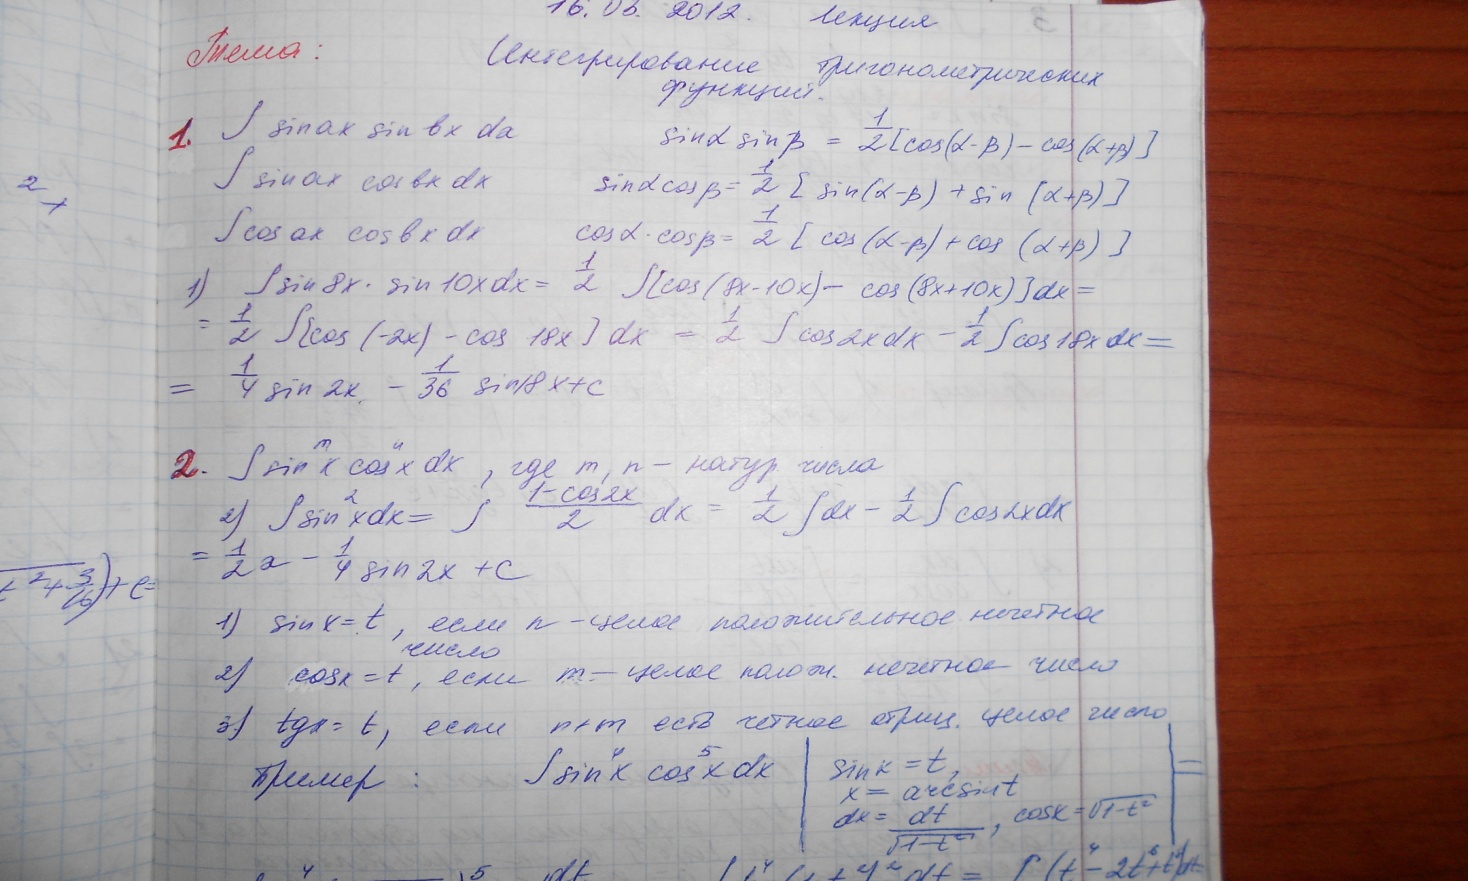 16.06.2012. лекция
Тема: Интегрирование тригонометрических
функций.
1. ∫ sin ax sin bx da sinα sinβ = 1/2 [cos(α-β) - cos(α+β)]
∫ sin ax cos bx dx sinα cosβ = 1/2 [sin(α-β) + sin(α+β)]
∫ cos ax cos bx dx cosα · cosβ = 1/2 [cos(α-β) + cos(α+β)]
1) ∫ sin 8x · sin 10x dx = 1/2 ∫ [cos(8x-10x) - cos(8x+10x)] dx =
= 1/2 ∫ [cos(-2x) - cos 18x] dx = 1/2 ∫ cos 2x dx - 1/2 ∫ cos 18x dx =
= 1/4 sin 2x - 1/36 sin 18x + c
2. ∫ sin^m x cos^n x dx, где m, n - натур числа
2) ∫ sin² x dx = ∫ (1-cos 2x)/2 dx = 1/2 ∫ dx - 1/2 ∫ cos 2x dx
= 1/2 x - 1/4 sin 2x + C
1) sin x = t, если n - целое положительное нечетное
число
2) cos x = t, если m - целое полож. нечетное число
3) tg x = t, если n+m есть четное отриц. целое число
Пример: ∫ sin⁴x cos⁵x dx | sin x = t, | =
x = arcsin t
dx = dt/√(1-t²), cos x = √(1-t²)